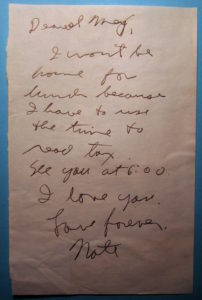 Dearest Meg,
I won't be
home for
lunch because
I have to use
the time to
read tax.
See you at 6:00
I love you.
Love forever.
Nate